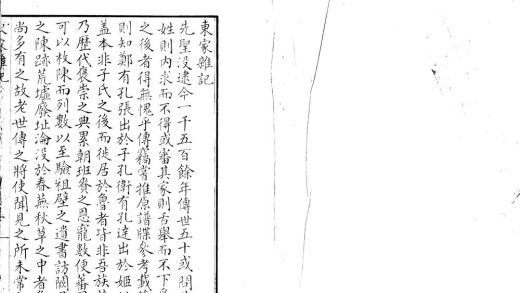 東家雜記
先聖没逮今一千五百餘年傳世五十或問
姓則内求而不得或審其家則舌舉而不下
之後者得無愧乎傳竊嘗推原譜牒參考載
則知鄭有孔張出於子孔衛有孔達出於姬
蓋本非子氏之後而徙居於魯者皆非吾族
乃歷代褒崇之典累朝班賚之恩寵數便蕃
可以枚陳而列數以至驗祖壁之遺書訪闕
之陳跡荒墟廢址淪没於春蕪秋草之中者
尚多有之故老世傳之將使聞見之所未常
家雜記